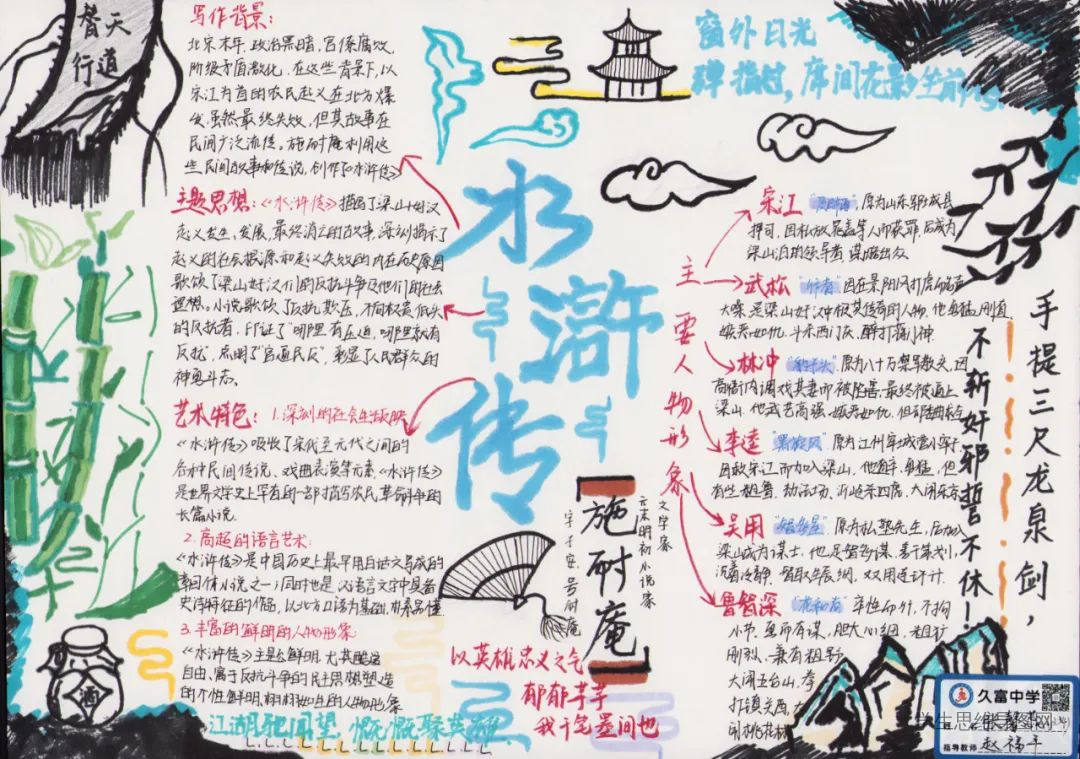 替天
行道
写作背景:
北宋末年,政治黑暗,官僚腐败,
阶级矛盾激化,在这些背景下,以
宋江为首的农民起义在北方爆
发,虽然最终失败,但其故事在
民间广泛流传。施耐庵利用这
些民间故事和传说,创作了《水浒传》
主题思想:《水浒传》描写了梁山好汉
起义发生、发展、最终消亡的故事,深刻揭示了
起义的社会根源和起义失败的内在历史原因
歌颂了梁山好汉们的反抗斗争及他们的社会
理想。小说歌颂了反抗欺压、不向权贵低头
的反抗者,印证了"哪里有压迫,哪里就有
反抗",点明了"官逼民反",彰显了人民群众的
神勇斗志。
艺术特色:1.深刻的社会生活反映
《水浒传》吸收了宋代至元代之间的
各种民间传说、戏曲表演等元素,《水浒传》
是世界文学史上罕有的一部描写农民革命斗争的
长篇小说。
2.高超的语言艺术:
《水浒传》是中国历史上最早用白话文写成的
章回体小说之一,同时也是汉语言文学中具备
史诗特征的作品,以北方口语为基础,
3.丰富的鲜明的人物形象
自由、富于反抗斗争的民主思想塑造
的个性鲜明、栩栩如生的人物形象
水浒传
窗外日光
弹指过,席间花影坐前
主要人物形象
宋江 原为山东郓城县
押司,因私放晁盖等人而获罪,后成为
梁山泊的领导者,谋略出众
武松 "行者" 因在景阳冈打虎而名声
大噪,是梁山好汉中极其传奇的人物,他勇猛、刚直、
嫉恶如仇,斗杀西门庆,醉打蒋门神
林冲 "豹子头" 原为八十万禁军教头,因
高衙内调戏其妻而被陷害,最终被逼上
梁山,他武艺高强、嫉恶如仇,但
李逵 "黑旋风" 原为江州牢城营小牢子
因救宋江而加入梁山,他直率、勇猛,但
有些粗鲁,劫法场、沂岭杀四虎、大闹东京
吴用 "智多星" 原为私塾先生,后加入
梁山成为谋士,他足智多谋、善于策划、
沉着冷静,智取生辰纲,双用连环计
鲁智深 "花和尚" 率性而为,不拘
小节,勇而有谋,胆大心细,粗犷
刚烈,兼有粗野
大闹五台山,拳
打镇关西,大
闹桃花村
手提三尺龙泉剑,
不斩奸邪誓不休!
施耐庵
元末明初小说家
文学家
字子安,号耐庵
以英雄忠义之气
郁郁芊芊
我于笔墨间也
江湖驰闻望,慷慨聚英雄
酒
久富中学
学生思维导图网
指导教师 赵福平